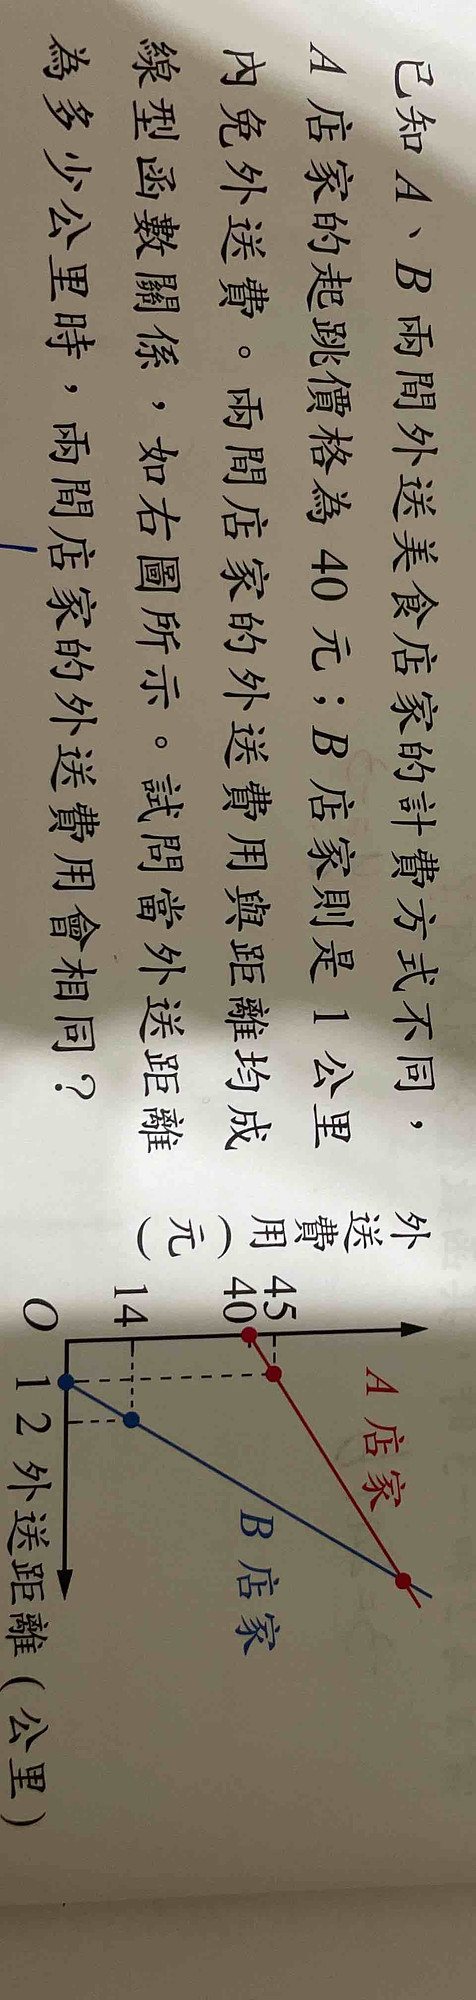 已知 A、B 兩間外送美食店家的計費方式不同，
A 店家的起跳價格為 40 元；B 店家則是 1 公里
內免外送費。兩間店家的外送費用與距離均成
線型函數關係，如右圖所示。試問當外送距離
為多少公里時，兩間店家的外送費用會相同？
外送費用（元）
A 店家
45
40
B 店家
14
O
1 2 外送距離（公里）